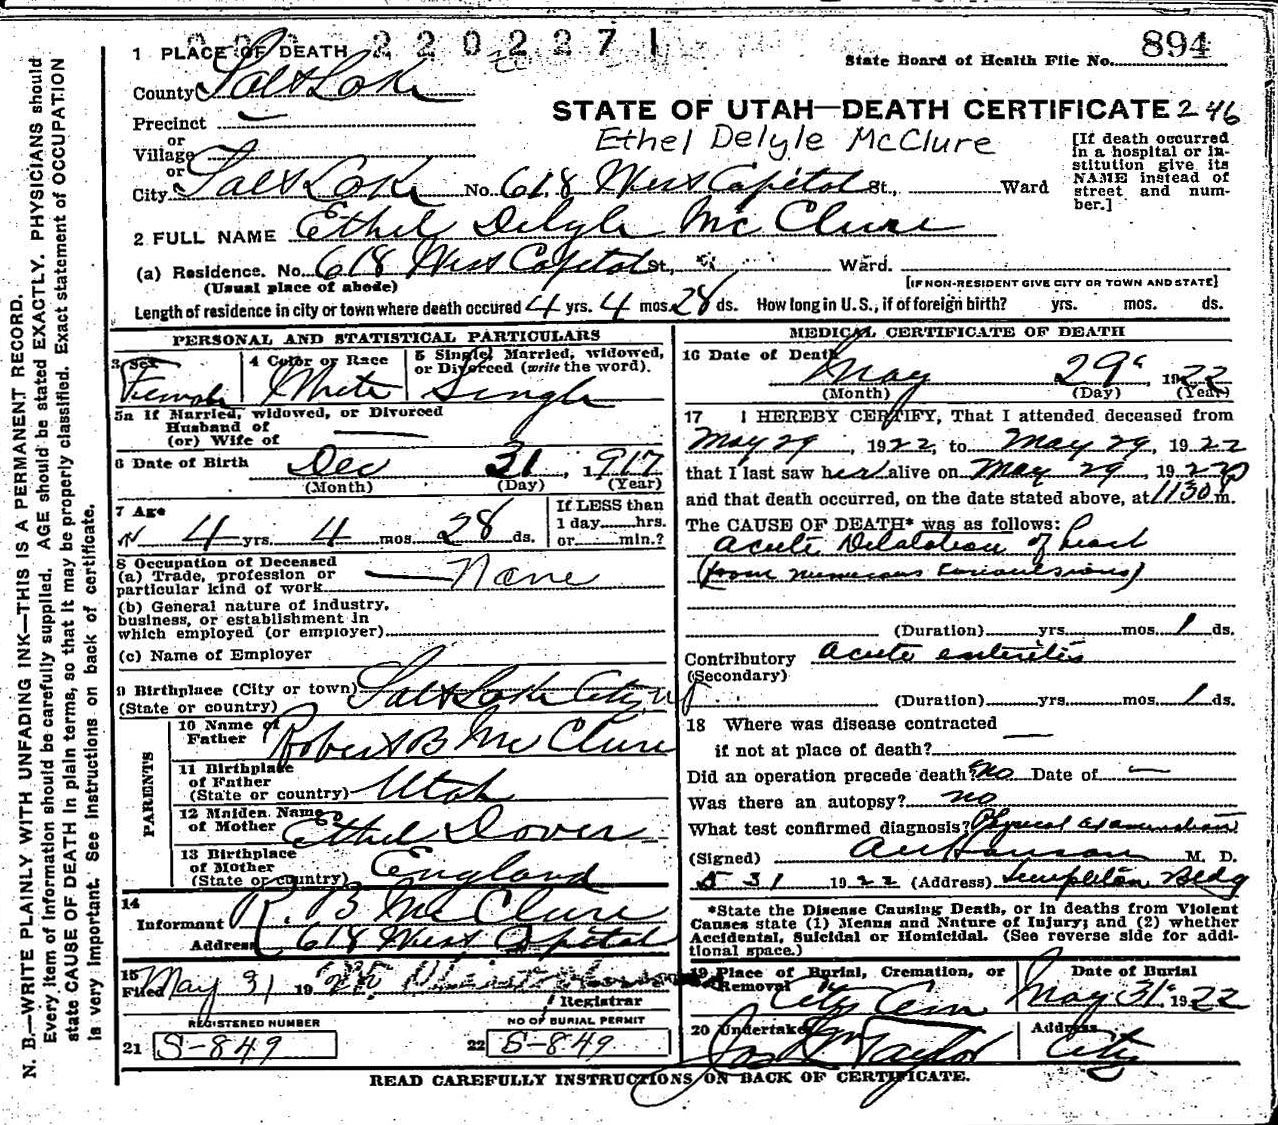 N. B.—WRITE PLAINLY WITH UNFADING INK—THIS IS A PERMANENT RECORD.
Every item of information should be carefully supplied. AGE should be stated EXACTLY. PHYSICIANS should
state CAUSE OF DEATH in plain terms, so that it may be properly classified. Exact statement of OCCUPATION
is very important. See instructions on back of certificate.
1 PLACE OF DEATH 2202371
State Board of Health File No. 894
County Salt Lake
STATE OF UTAH—DEATH CERTIFICATE 246
Precinct
or
Village
or
Ethel Delyle McClure
[If death occurred in a hospital or institution give its NAME instead of street and number.]
City Salt Lake No. 618 West Capitol St., Ward
2 FULL NAME Ethel Delyle McClure
(a) Residence. No. 618 West Capitol St., Ward.
(Usual place of abode) [IF NON-RESIDENT GIVE CITY OR TOWN AND STATE]
Length of residence in city or town where death occured 4 yrs. 4 mos. 28 ds. How long in U. S., if of foreign birth? yrs. mos. ds.
PERSONAL AND STATISTICAL PARTICULARS
3 Sex Female
4 Color or Race White
5 Single, Married, widowed, or Divorced (write the word). Single
5a If Married, widowed, or Divorced
Husband of
(or) Wife of
6 Date of Birth Dec 31, 1917
(Month) (Day) (Year)
7 Age 4 yrs. 4 mos. 28 ds.
If LESS than
1 day hrs.
or min.?
8 Occupation of Deceased
(a) Trade, profession or
particular kind of work None
(b) General nature of industry,
business, or establishment in
which employed (or employer)
(c) Name of Employer
9 Birthplace (City or town) Salt Lake City U
(State or country)
PARENTS
10 Name of Father Robert B McClure
11 Birthplace of Father (State or country) Utah
12 Maiden Name of Mother Ethel Dover
13 Birthplace of Mother (State or country) England
14
Informant R. B McClure
Address 618 West Capitol
15
Filed May 31 192
Registrar
REGISTERED NUMBER
21 S-849
NO OF BURIAL PERMIT
22 S-849
MEDICAL CERTIFICATE OF DEATH
16 Date of Death May 29 1922
(Month) (Day) (Year)
17 I HEREBY CERTIFY, That I attended deceased from
May 29, 1922, to May 29, 1922
that I last saw her alive on May 29, 1922
and that death occurred, on the date stated above, at 1130 P m.
The CAUSE OF DEATH* was as follows:
Acute Dilatation of heart
(from numerous convulsions)
(Duration) yrs. mos. 1 ds.
Contributory Acute enteritis
(Secondary)
(Duration) yrs. mos. 1 ds.
18 Where was disease contracted
if not at place of death?
Did an operation precede death? no Date of —
Was there an autopsy? no
What test confirmed diagnosis? Physical examination
(Signed) M. D.
5 31 1922 (Address) Templeton Bldg
*State the Disease Causing Death, or in deaths from Violent
Causes state (1) Means and Nature of Injury; and (2) whether
Accidental, Suicidal or Homicidal. (See reverse side for addi-
tional space.)
19 Place of Burial, Cremation, or Removal City Cem
Date of Burial May 31 1922
20 Undertaker Taylor
Address City
READ CAREFULLY INSTRUCTIONS ON BACK OF CERTIFICATE.